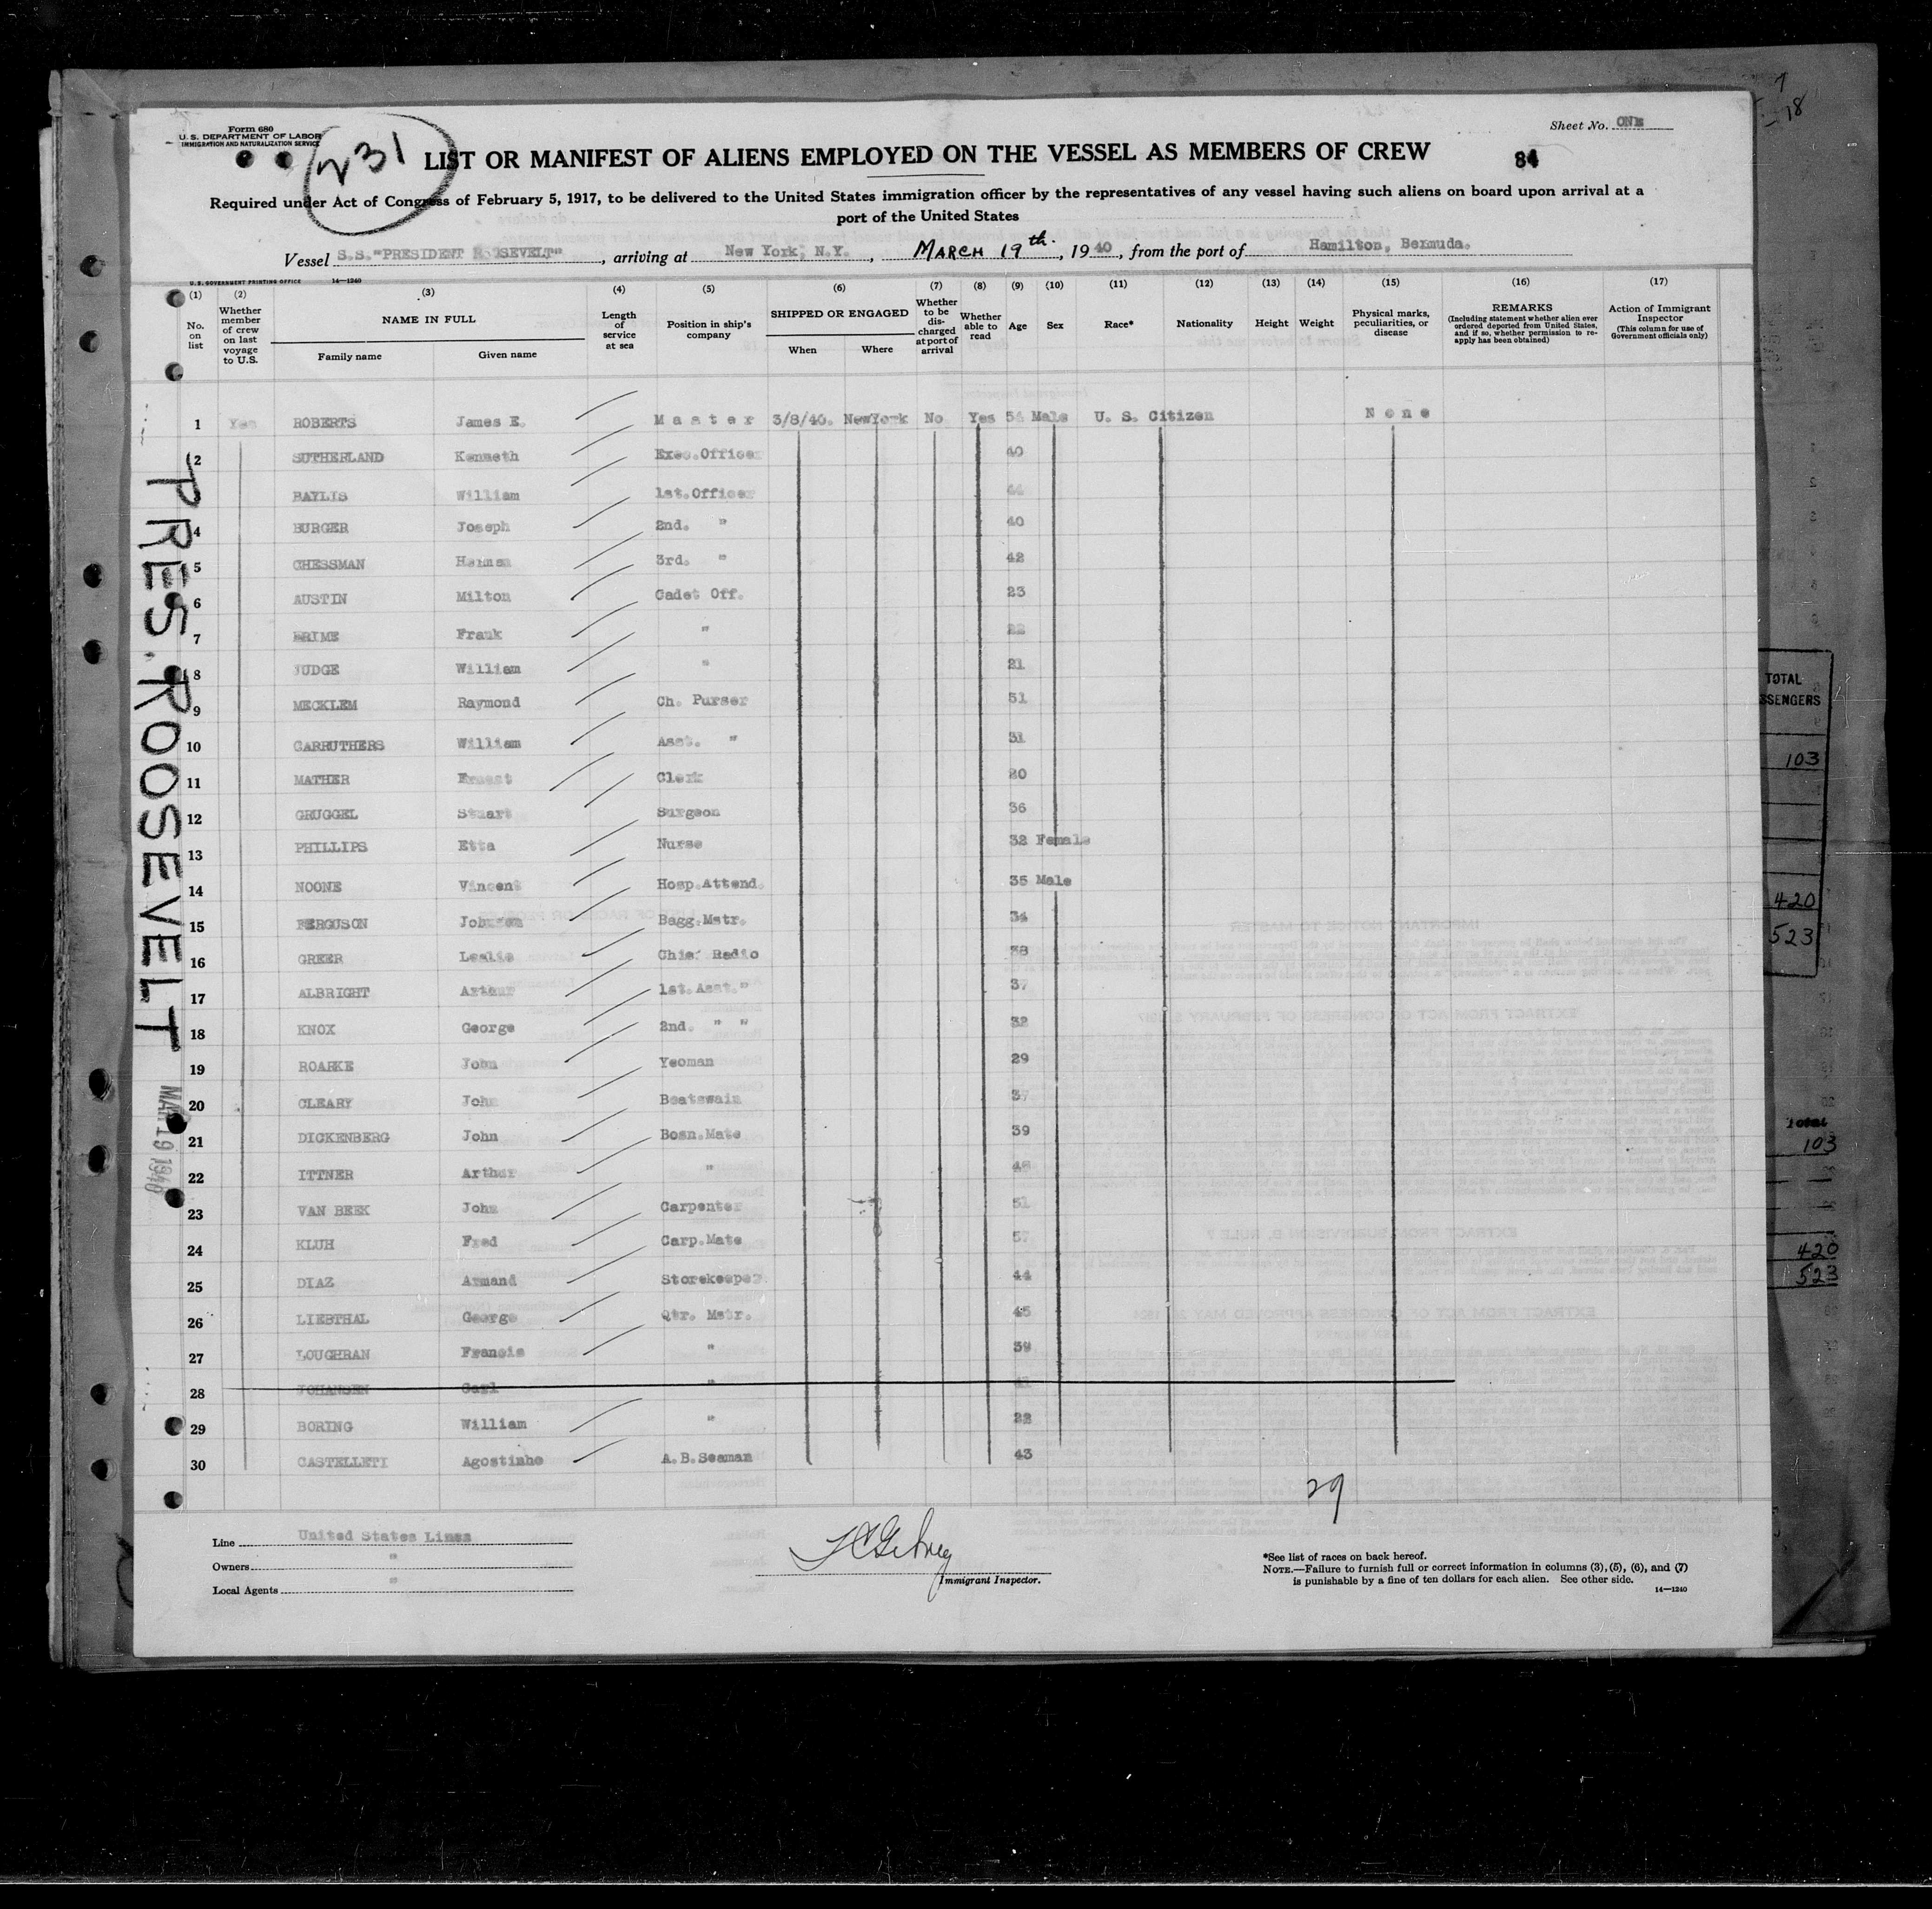 Form 680
U. S. DEPARTMENT OF LABOR
IMMIGRATION AND NATURALIZATION SERVICE
231
Sheet No. ONE
LIST OR MANIFEST OF ALIENS EMPLOYED ON THE VESSEL AS MEMBERS OF CREW
84
Required under Act of Congress of February 5, 1917, to be delivered to the United States immigration officer by the representatives of any vessel having such aliens on board upon arrival at a
port of the United States
Vessel S.S. "PRESIDENT ROOSEVELT", arriving at New York, N.Y., MARCH 19th, 1940, from the port of Hamilton, Bermuda.
U. S. GOVERNMENT PRINTING OFFICE 14—1240
(1) No. on list
(2) Whether member of crew on last voyage to U.S.
(3) NAME IN FULL Family name Given name
(4) Length of service at sea
(5) Position in ship's company
(6) SHIPPED OR ENGAGED When Where
(7) Whether to be discharged at port of arrival
(8) Whether able to read
(9) Age
(10) Sex
(11) Race*
(12) Nationality
(13) Height
(14) Weight
(15) Physical marks, peculiarities, or disease
(16) REMARKS (Including statement whether alien ever ordered deported from United States, and if so, whether permission to reapply has been obtained)
(17) Action of Immigrant Inspector (This column for use of Government officials only)
1 Yes ROBERTS James E. Master 3/8/40. NewYork No Yes 54 Male U. S. Citizen None
2 SUTHERLAND Kenneth Exec.Officer 40
BAYLIS William 1st.Officer 44
4 BURGER Joseph 2nd. " 40
5 CHESSMAN Harmen 3rd. " 42
6 AUSTIN Milton Cadet Off. 23
7 PRIME Frank " 22
8 JUDGE William " 21
9 MECKLEM Raymond Ch. Purser 51
10 CARRUTHERS William Asst. " 31
11 MATHER Ernest Clerk 20
12 GRUGGEL Stuart Surgeon 36
13 PHILLIPS Etta Nurse 32 Female
14 NOONE Vincent Hosp.Attend. 35 Male
15 FERGUSON Johnson Bagg.Mstr. 34
16 GREER Leslie Chief Radio 38
17 ALBRIGHT Arthur 1st.Asst." 37
18 KNOX George 2nd. " " 32
19 ROARKE John Yeoman 29
20 CLEARY John Boatswain 37
21 DICKENBERG John Bosn.Mate 39
22 ITTNER Arthur " 48
23 VAN BEEK John Carpenter 51
24 KLUH Fred Carp.Mate 57
25 DIAZ Armand Storekeeper 44
26 LIEBTHAL George Qtr. Mstr. 45
27 LOUGHRAN Francis " 39
28 JOHANSEN Carl " 41
29 BORING William " 22
30 CASTELLETI Agostinho A.B.Seaman 43
29
PRES. ROOSEVELT
MAR 19 1940
TOTAL
103
420
523
Total
103
420
523
Line United States Lines
Owners "
Local Agents "
Immigrant Inspector.
*See list of races on back hereof.
NOTE.—Failure to furnish full or correct information in columns (3), (5), (6), and (7)
is punishable by a fine of ten dollars for each alien. See other side.
14—1240